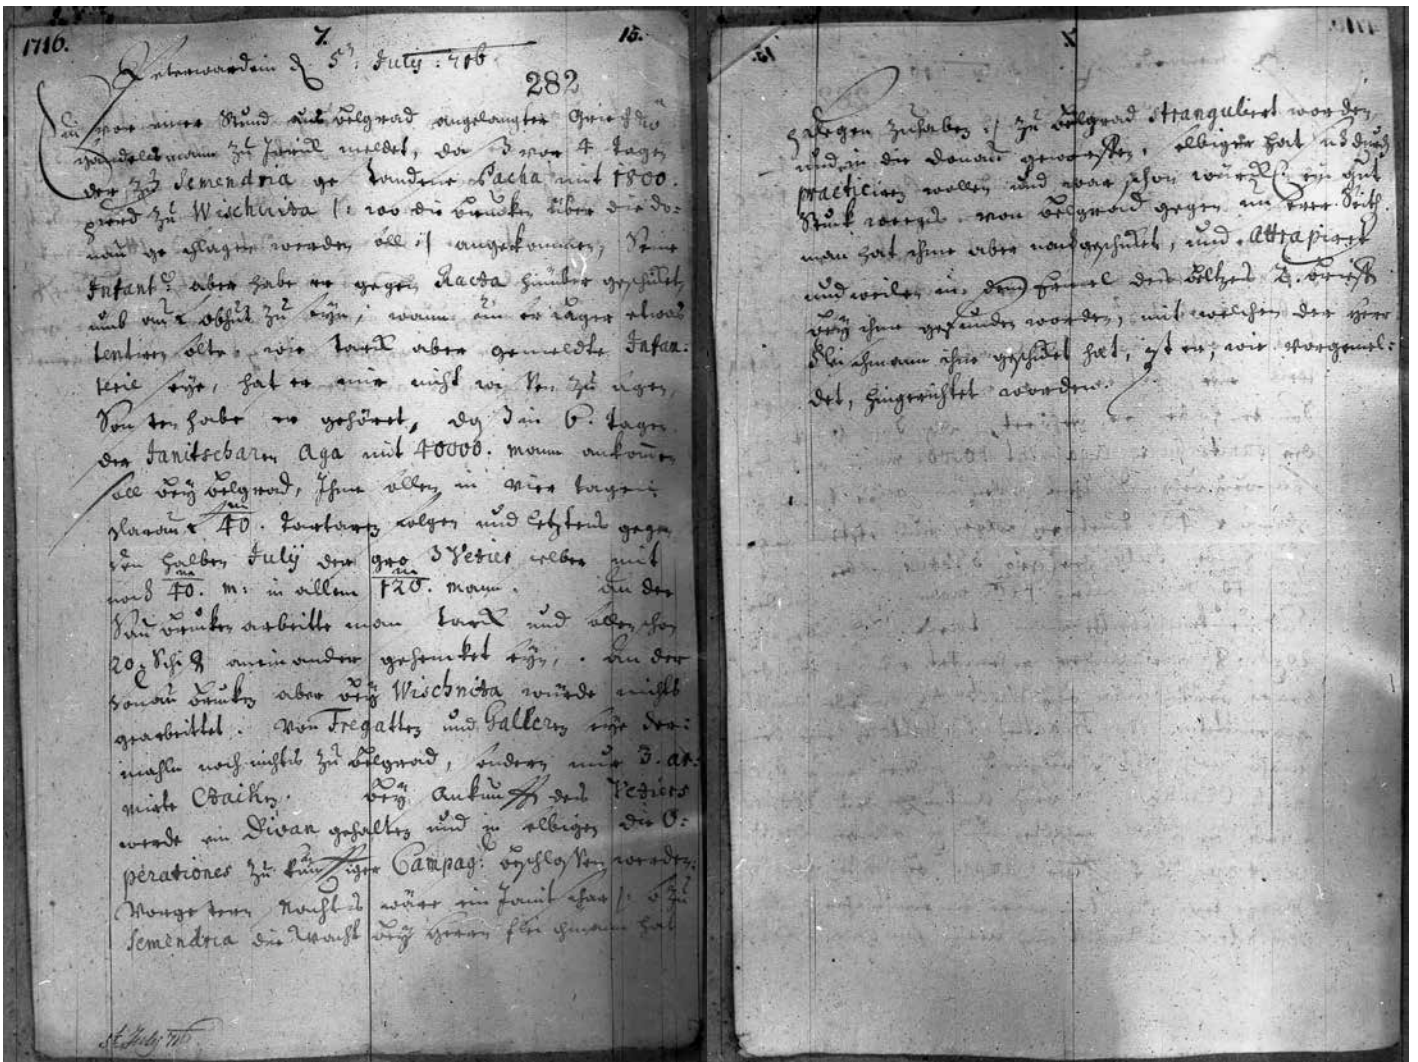 1716.
7.
15.
Peterwardein d. 5t July 716.
282
Ein vor einer Stund aus Belgrad angelangter Griechischer
Handelsmann zu Jarek meldet, daß vor 4 Tagen
der zu Semendria gestandene Pacha mit 1800.
Pferd zu Wischniza /: wo die Brucken über die Do=
nau geschlagen werden soll :/ angekommen, Seine
Infant: aber habe er gegen Racza hinüber geschicket,
umb auf obhut zu seyn, wann unser Lager etwas
tentiren solte, wie starck aber gemeldte Infan:
terie seye, hat er mir nicht wissen zu sagen,
Sonsten habe er gehöret, daß in 6. Tagen
der Janitscharen Aga mit 40000. Mann ankommen
soll bey Belgrad, Ihme sollen in vier Tagen
darauf 40/m. Tartaren folgen und letztens gegen
den halben July der groß Vezier selber mit
noch 40/m. M: in allem 120/m. Mann. An der
Sau Brucken arbeitte man starck und sollen schon
20. Schiff aneinander gehencket seyn, An der
Donau Brucken aber bey Wischniza würde nichts
gearbeittet. Von Fregatten und Galleren seye der=
mahln noch nichts zu Belgrad, sondern nur 3. ar=
mirte Czaiken. Bey Ankunfft des Veziers
werde ein Divan gehalten und in selbigen die O:
perationes zu künfftiger Campag: beschlossen werden.
Vorgestern Nachts wäre ein Janitschar /: so zu
Semendria die Wacht bey Herrn Fleischmann hat
5t July 716
15.
7
1716.
pflegen zuhaben :/ zu Belgrad stranguliert worden,
und in die Donau geworffen, selbiger hat sich durch
practiciren wollen und war schon würcklich ein gut
Stuck weeges von Belgrad gegen unserer Seith,
man hat ihme aber nachgeschickt, und attrapiret
und weilen in dem Ermel des Beltzes Brieff
bey ihme gefunden worden, mit welchen der Herr
Fleischmann ihne geschickt hat, ist er, wie vorgemel=
det, hingerichtet worden.